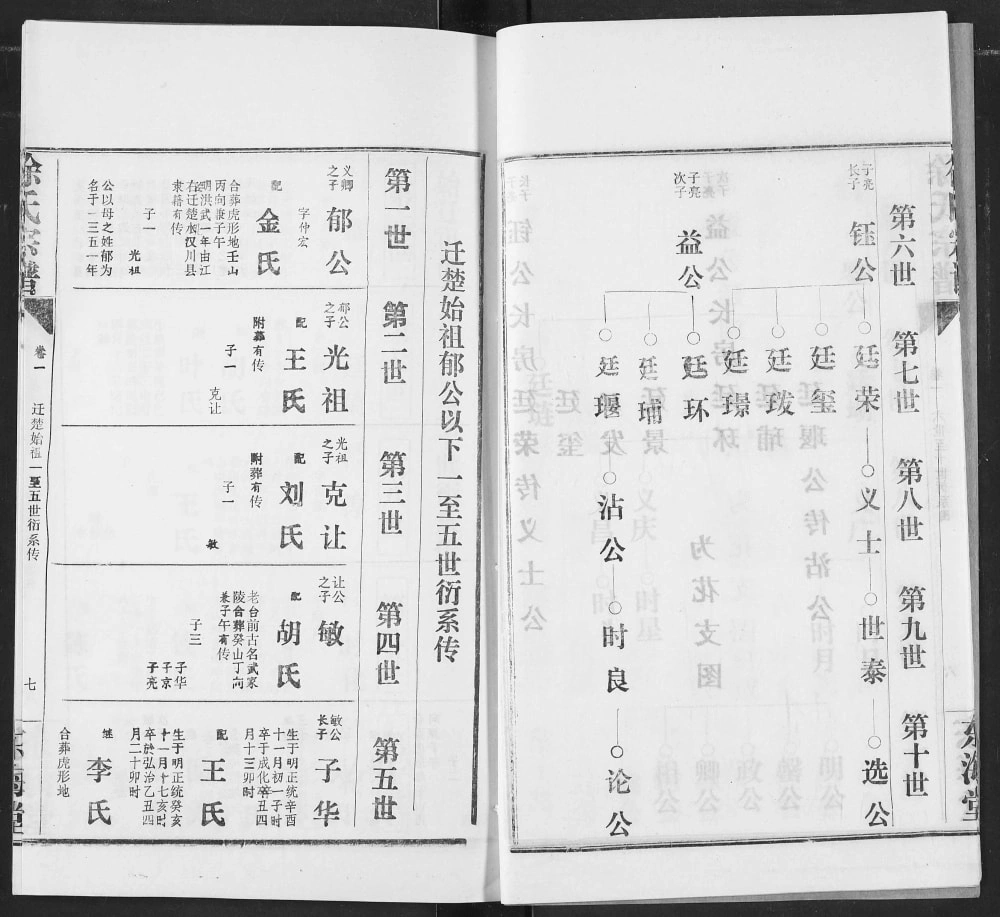 第六世
第七世
第八世
第九世
第十世
子亮
长子
钰公
廷荣
义士
世泰
选公
廷玺
廷㺶
廷璟
子亮
次子
益公
廷环
廷瑀
廷堰
发
沾公
时良
论公
东海堂
迁楚始祖郁公以下一至五世衍系传
第一世
第二世
第三世
第四世
第五世
义卿
之子
郁公
字仲宏
配
金氏
合葬虎形地壬山
丙向兼子午
明洪武一年由江
右迁楚水汉川县
隶籍有传
子一
光祖
公以母之姓郁为
名于一三五一年
郁公
之子
光祖
配
王氏
附葬有传
子一
克让
光祖
之子
克让
配
刘氏
附葬有传
子一
敏
让公
之子
敏
配
胡氏
老台前古名武家
陵合葬癸山丁向
兼子午有传
子三
子华
子京
子亮
敏公
长子
子华
生于明正统辛酉
十一月初一子时
卒于成化辛丑四
月十三卯时
配
王氏
生于明正统癸亥
十一月十七亥时
卒於弘治乙丑四
月二十卯时
继
李氏
合葬虎形地
徐氏宗谱
卷一
迁楚始祖一至五世衍系传
七
东海堂